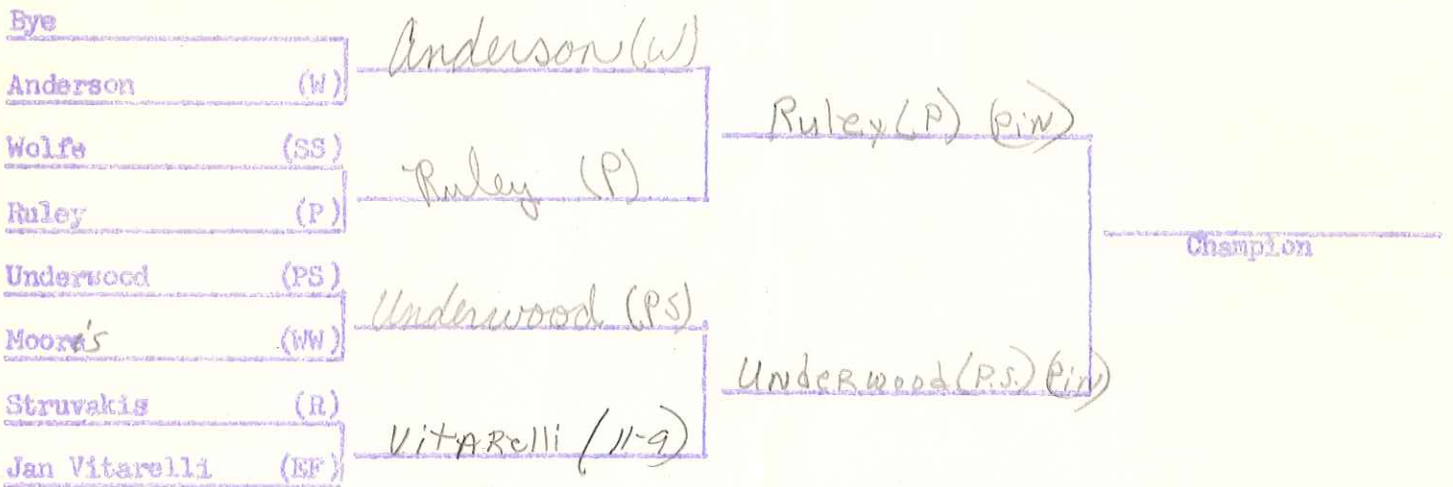 Bye
Anderson (W)
Wolfe (SS)
Ruley (P)
Underwood (PS)
Moore's (WW)
Struvakis (R)
Jan Vitarelli (EF)
Anderson (W)
Ruley (P)
Underwood (PS)
VitARelli (11-9)
Ruley (P) (PiN)
UNdeRwood (P.S.) (PiN)
Champion